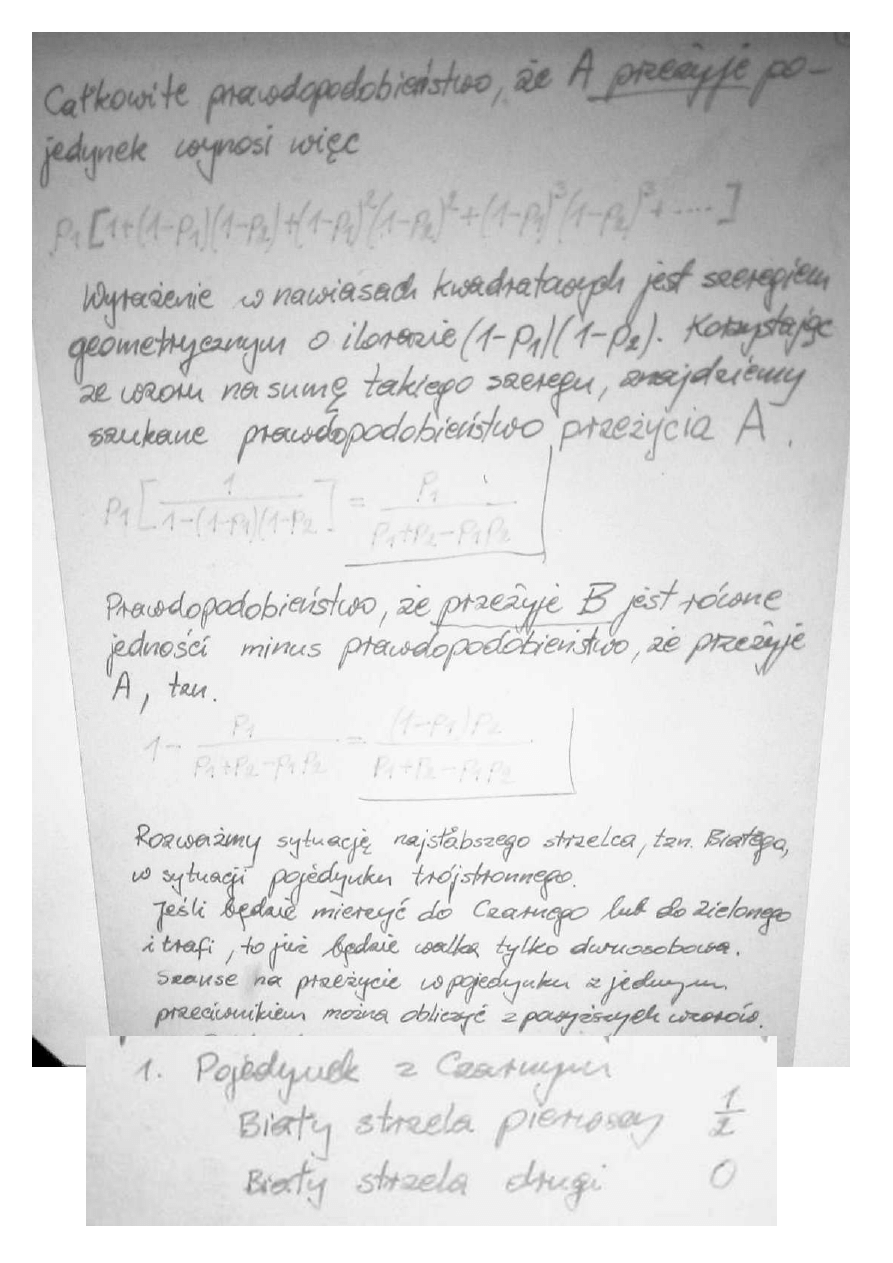 Całkowite prawdopodobieństwo, że A przeżyje po-
jedynek wynosi więc
p₁[1+(1-p₁)(1-p₂)+(1-p₁)²(1-p₂)²+(1-p₁)³(1-p₂)³+....]
Wyrażenie w nawiasach kwadratowych jest szeregiem
geometrycznym o ilorazie (1-p₁)(1-p₂). Korzystając
ze wzoru na sumę takiego szeregu, znajdziemy
szukane prawdopodobieństwo przeżycia A.
p₁[1/(1-(1-p₁)(1-p₂)] = p₁/(p₁+p₂-p₁p₂)
Prawdopodobieństwo, że przeżyje B jest równe
jedności minus prawdopodobieństwo, że przeżyje
A, tzn.
1- p₁/(p₁+p₂-p₁p₂) = (1-p₁)p₂/(p₁+p₂-p₁p₂)
Rozważmy sytuację najsłabszego strzelca, tzn. Białego,
w sytuacji pojedynku trójstronnego.
Jeśli będzie mierzyć do Czarnego lub do zielonego
i trafi, to już będzie walka tylko dwuosobowa.
Szanse na przeżycie w pojedynku z jednym
przeciwnikiem można obliczyć z powyższych wzorów.
1. Pojedynek z Czarnym
Biały strzela pierwszy 1/2
Biały strzela drugi 0